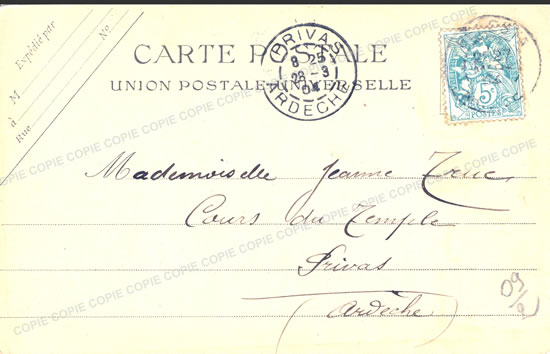 Expédié par
M
à
Rue No
CARTE POSTALE
UNION POSTALE UNIVERSELLE
PRIVAS
8 25
28 -3
04
ARDECHE
5c
POSTES
Mademoiselle Jeanne Truc
Cours du Temple
Privas
Ardèche
COPIE COPIE COPIE COPIE COPIE COPIE